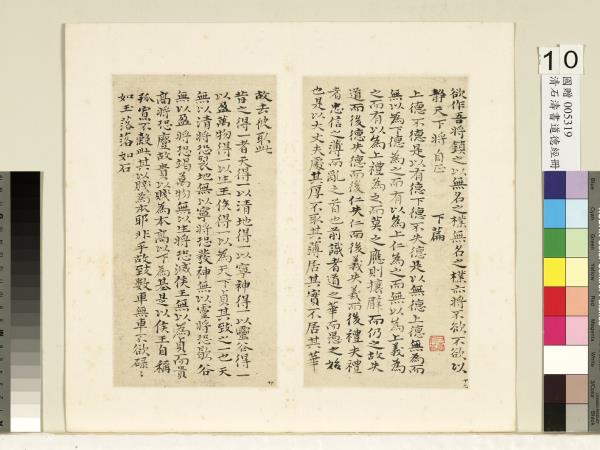 欲作吾將鎮之以無名之樸無名之樸亦將不欲不欲以
靜天下將自正　下篇
上德不德是以有德下德不失德是以無德上德無為而
無以為下德為之而有以為上仁為之而無以為上義為
之而有以為上禮為之而莫之應則攘臂而仍之故失
道而後德失德而後仁失仁而後義失義而後禮夫禮
者忠信之薄而亂之首也前識者道之華而愚之始
也是以大丈夫處其厚不取其薄居其實不居其華
故去彼取此
昔之得一者天得一以清地得一以寧神得一以靈谷得一
以盈萬物得一以生王侯得一以為天下貞其致之一也天
無以清將恐裂地無以寧將恐發神無以靈將恐歇谷
無以盈將恐竭萬物無以生將恐滅侯王無以為貞而貴
高將恐蹷故貴以賤為本高以下為基是以侯王自稱
孤寡不穀此其以賤為本耶非乎故致數車無車不欲碌〻
如玉落落如石
10
國贈 005319
清石濤書道德經冊